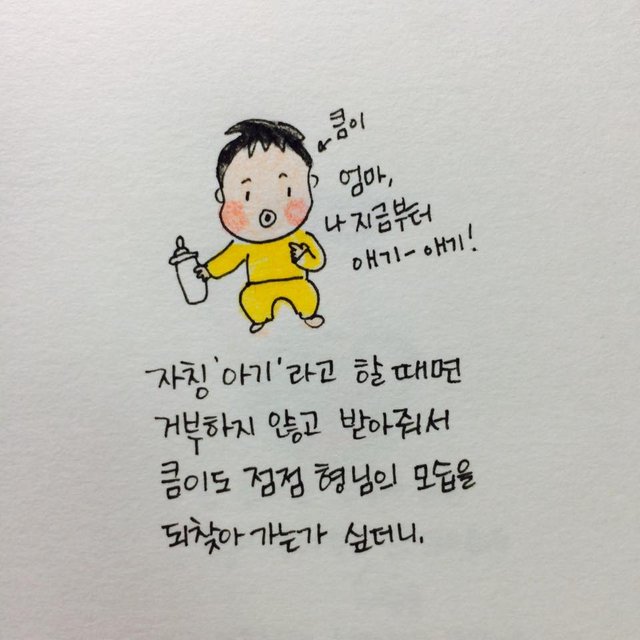 큼이
엄마,
나 지금부터
애기-애기!
자칭 '아기'라고 할 때면
거부하지 않고 받아줘서
큼이도 점점 형님의 모습을
되찾아 가는가 싶더니,